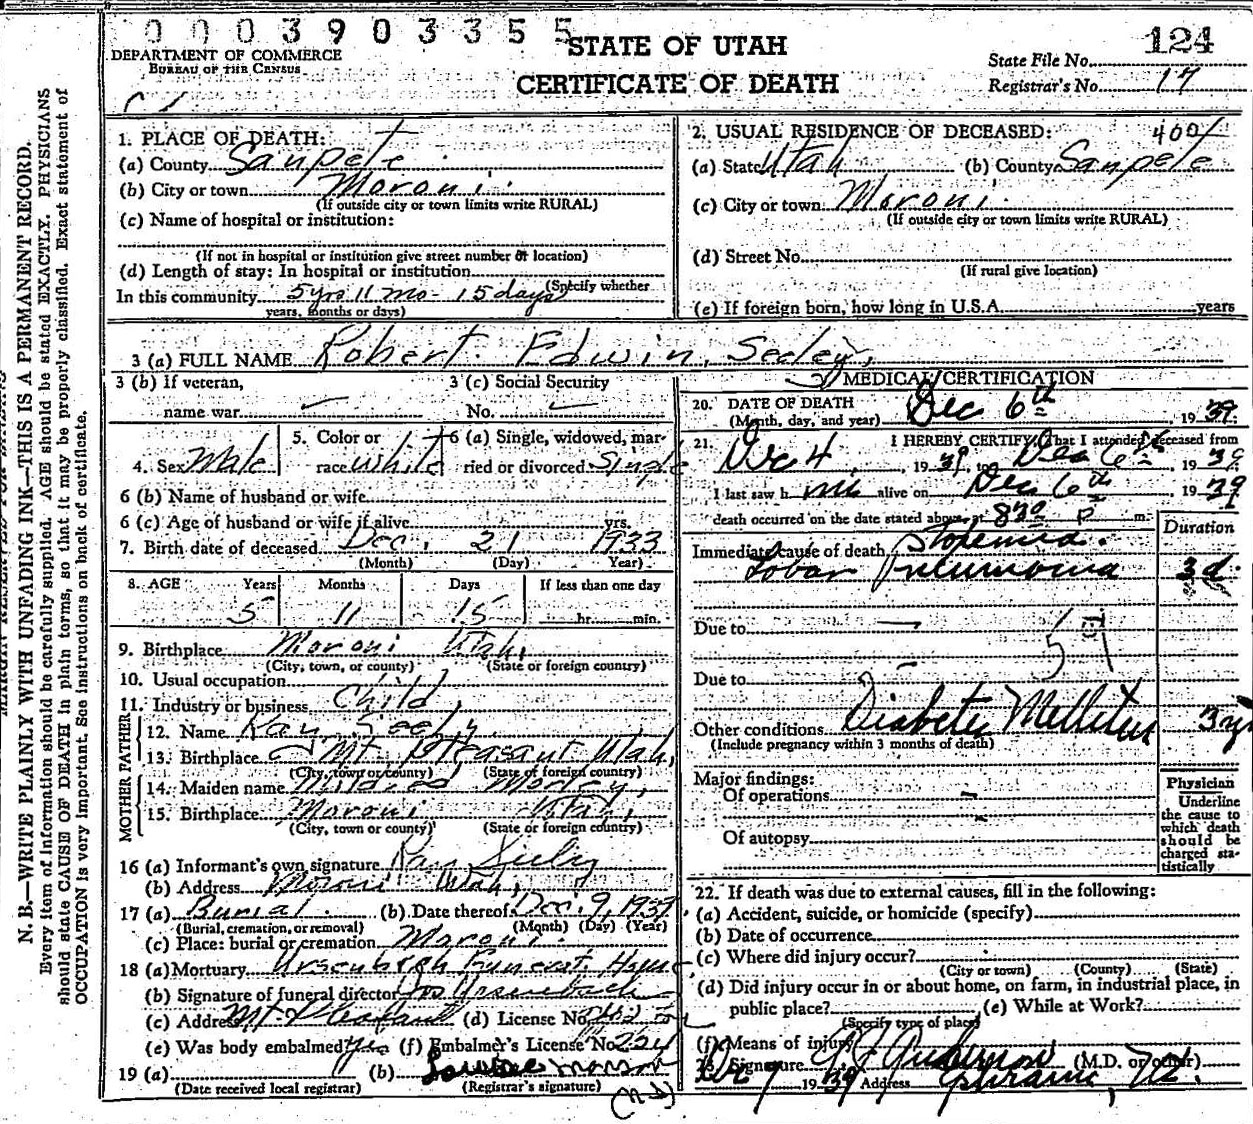 0003903355
STATE OF UTAH
124
DEPARTMENT OF COMMERCE
BUREAU OF THE CENSUS
CERTIFICATE OF DEATH
State File No.
Registrar's No. 17
1. PLACE OF DEATH:
(a) County Sanpete
(b) City or town Moroni
(If outside city or town limits write RURAL)
(c) Name of hospital or institution:
(If not in hospital or institution give street number or location)
(d) Length of stay: In hospital or institution
(Specify whether
In this community 5 yrs 11 mo - 15 days
years, months or days)
2. USUAL RESIDENCE OF DECEASED:
(a) State Utah (b) County Sanpete
(c) City or town Moroni
(If outside city or town limits write RURAL)
(d) Street No.
(If rural give location)
(e) If foreign born, how long in U.S.A. years
3 (a) FULL NAME Robert Edwin Seeley
3 (b) If veteran, 3 (c) Social Security
name war No.
4. Sex Male 5. Color or race White 6 (a) Single, widowed, married or divorced Single
6 (b) Name of husband or wife
6 (c) Age of husband or wife if alive yrs.
7. Birth date of deceased Dec. 21 1933
(Month) (Day) Year)
8. AGE Years Months Days If less than one day
5 11 15 hr. min.
9. Birthplace Moroni Utah
(City, town, or county) (State or foreign country)
10. Usual occupation
11. Industry or business Child
FATHER
12. Name Ray Seely
13. Birthplace Mt. Pleasant Utah
(City, town or county) (State of foreign country)
MOTHER
14. Maiden name Mildred Morley
15. Birthplace Moroni Utah
(City, town or county) (State or foreign country)
16 (a) Informant's own signature Ray Seely
(b) Address Moroni Utah
17 (a) Burial (b) Date thereof Dec. 9, 1939
(Burial, cremation, or removal) (Month) (Day) (Year)
(c) Place: burial or cremation Moroni
18 (a) Mortuary Ursenbach Funeral Home
(b) Signature of funeral director Ursenbach
(c) Address Mt Pleasant (d) License No.
(e) Was body embalmed? yes (f) Embalmer's License No. 224
19 (a) (b)
(Date received local registrar) (Registrar's signature)
MEDICAL CERTIFICATION
20. DATE OF DEATH Dec 6th 1939
(Month, day, and year)
21. I HEREBY CERTIFY, That I attended deceased from
Dec 4, 1939 to Dec 6th 1939
I last saw him alive on Dec 6th 1939
death occurred on the date stated above, at 8 30 P m.
Duration
Immediate cause of death
Lobar Pneumonia 3 d.
Due to
Due to
Other conditions Diabetes Mellitus 3 y
(Include pregnancy within 3 months of death)
Major findings:
Of operations
Of autopsy
Physician
Underline
the cause to
which death
should be
charged sta-
tistically
22. If death was due to external causes, fill in the following:
(a) Accident, suicide, or homicide (specify)
(b) Date of occurrence
(c) Where did injury occur?
(City or town) (County) (State)
(d) Did injury occur in or about home, on farm, in industrial place, in
public place? (e) While at Work?
(Specify type of place)
(f) Means of injury
23. Signature Anderson (M.D. or other)
Dec 7 1939 Address Ephraim, Ut.
N. B.—WRITE PLAINLY WITH UNFADING INK—THIS IS A PERMANENT RECORD.
Every item of information should be carefully supplied. AGE should be stated EXACTLY. PHYSICIANS
should state CAUSE OF DEATH in plain terms, so that it may be properly classified. Exact statement of
OCCUPATION is very important. See instructions on back of certificate.